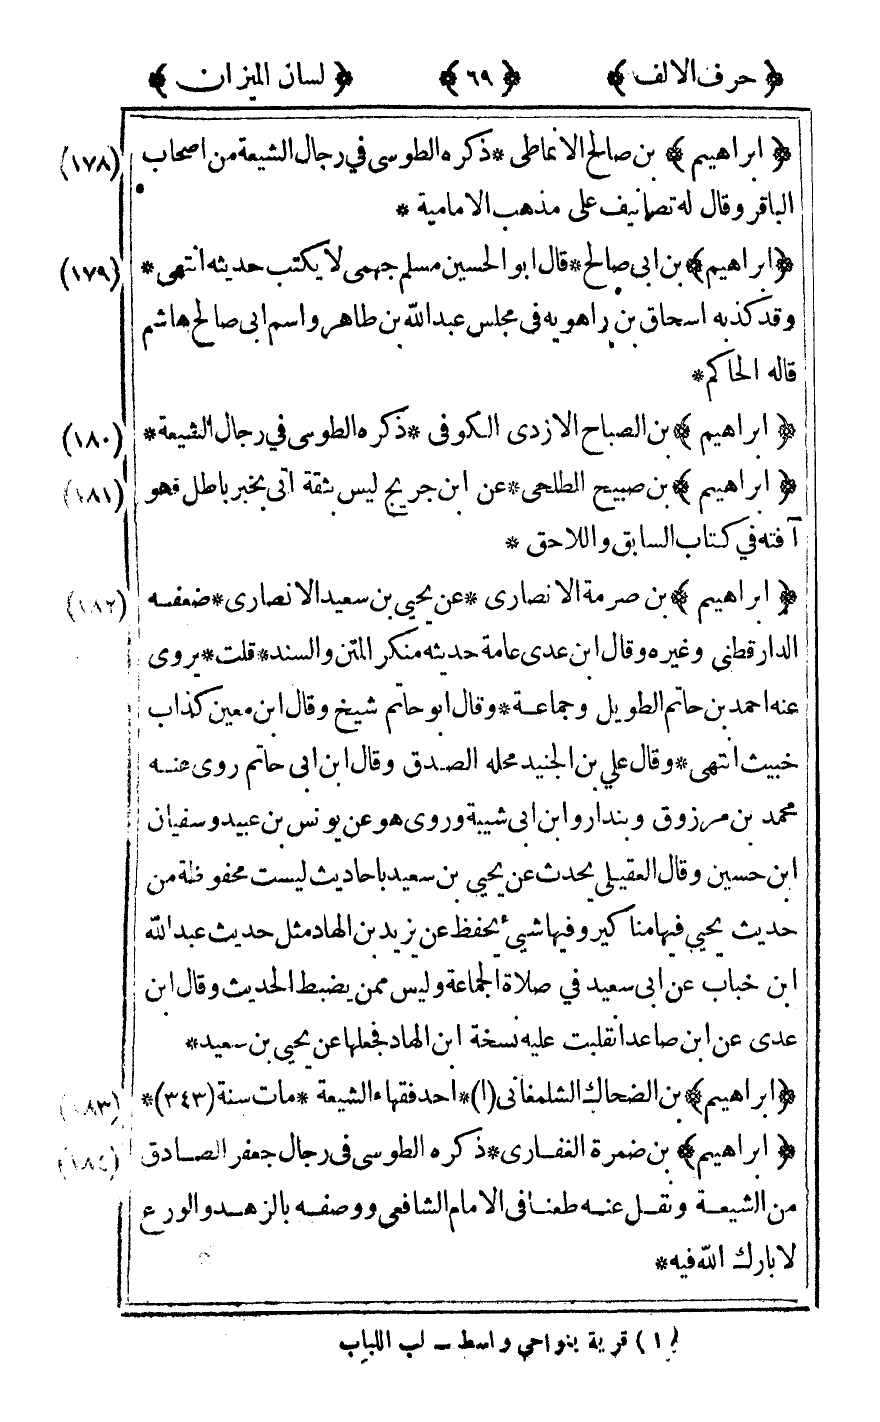 ﴿ حرف الالف ﴾ ﴿ ٦٩ ﴾ ﴿ لسان الميزان ﴾
﴿ ابراهيم ﴾ بن صالح الانماطى * ذكره الطوسى في رجال الشيعة من اصحاب (١٧٨)
الباقر وقال له تصانيف على مذهب الامامية *
﴿ ابراهيم ﴾ بن ابى صالح * قال ابو الحسين مسلم جهمى لا يكتب حديثه انتهى * (١٧٩)
وقد كذبه اسحاق بن راهويه فى مجلس عبد الله بن طاهر واسم ابى صالح هاشم
قاله الحاكم *
﴿ ابراهيم ﴾ بن الصباح الازدى الكوفى * ذكره الطوسى في رجال الشيعة * (١٨٠)
﴿ ابراهيم ﴾ بن صبيح الطلحى * عن ابن جريج ليس بثقة اتى بخبر باطل فهو (١٨١)
آفته في كتاب السابق واللاحق *
﴿ ابراهيم ﴾ بن صرمة الانصارى * عن يحيى بن سعيد الانصارى * ضعفه (١٨٢)
الدارقطنى وغيره وقال ابن عدى عامة حديثه منكر المتن والسند * قلت * يروى
عنه احمد بن حاتم الطويل وجماعة * وقال ابو حاتم شيخ وقال ابن معين كذاب
خبيث انتهى * وقال علي بن الجنيد محله الصدق وقال ابن ابى حاتم روى عنه
محمد بن مرزوق وبندار وابن ابى شيبة وروى هو عن يونس بن عبيد وسفيان
ابن حسين وقال العقيلى يحدث عن يحيى بن سعيد باحاديث ليست محفوظة من
حديث يحيى فيها مناكير وفيها شيئ يحفظ عن يزيد بن الهاد مثل حديث عبد الله
ابن خباب عن ابى سعيد في صلاة الجماعة وليس ممن يضبط الحديث وقال ابن
عدى عن ابن صاعد انقلبت عليه نسخة ابن الهاد فجعلها عن يحيى بن سعيد *
﴿ ابراهيم ﴾ بن الضحاك الشلمغانى (١) * احد فقهاء الشيعة * مات سنة (٣٤٣) * (١٨٣)
﴿ ابراهيم ﴾ بن ضمرة الغفارى * ذكره الطوسى فى رجال جعفر الصادق (١٨٤)
من الشيعة ونقل عنه طعنا فى الامام الشافعى ووصفه بالزهد والورع
لا بارك الله فيه *
(١) قرية بنواحي واسط — لب اللباب